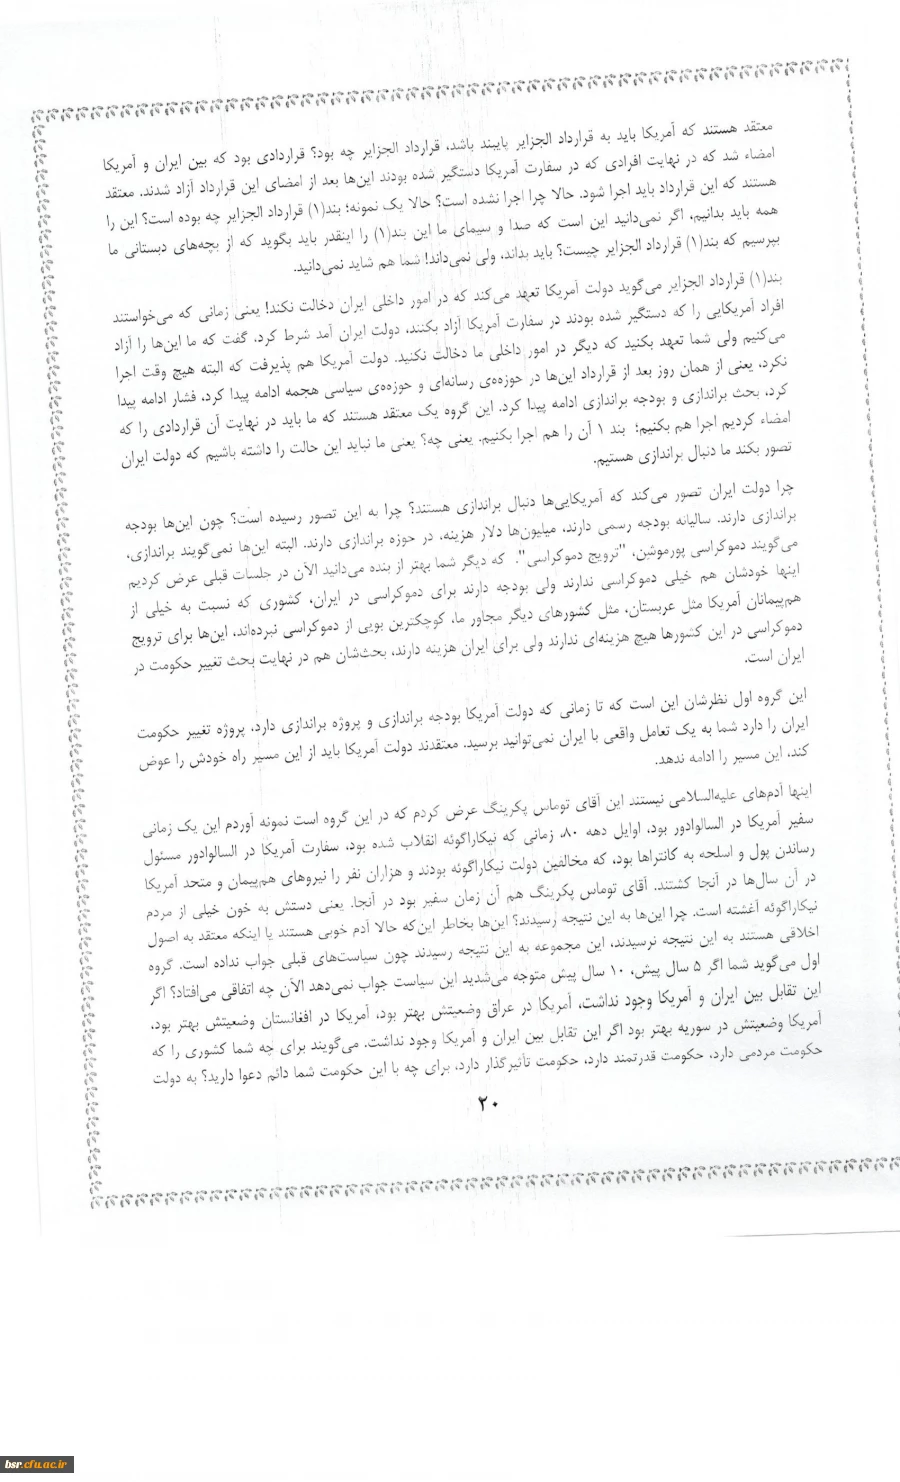 معتقد هستند که آمریکا باید به قرارداد الجزایر پایبند باشد، قرارداد الجزایر چه بود؟ قراردادی بود که بین ایران و آمریکا
امضاء شد که در نهایت افرادی که در سفارت آمریکا دستگیر شده بودند این‌ها بعد از امضای این قرارداد آزاد شدند. معتقد
هستند که این قرارداد باید اجرا شود. حالا چرا اجرا نشده است؟ حالا یک نمونه؛ بند(۱) قرارداد الجزایر چه بوده است؟ این را
همه باید بدانیم، اگر نمی‌دانید این است که صدا و سیمای ما این بند(۱) را اینقدر باید بگوید که از بچه‌های دبستانی ما
بپرسیم که بند(۱) قرارداد الجزایر چیست؟ باید بداند، ولی نمی‌داند! شما هم شاید نمی‌دانید.
بند(۱) قرارداد الجزایر می‌گوید دولت آمریکا تعهد می‌کند که در امور داخلی ایران دخالت نکند! یعنی زمانی که می‌خواستند
افراد آمریکایی را که دستگیر شده بودند در سفارت آمریکا آزاد بکنند، دولت ایران آمد شرط کرد. گفت که ما این‌ها را آزاد
می‌کنیم ولی شما تعهد بکنید که دیگر در امور داخلی ما دخالت نکنید. دولت آمریکا هم پذیرفت که البته هیچ وقت اجرا
نکرد، یعنی از همان روز بعد از قرارداد این‌ها در حوزه‌ی رسانه‌ای و حوزه‌ی سیاسی هجمه ادامه پیدا کرد، فشار ادامه پیدا
کرد، بحث براندازی و بودجه براندازی ادامه پیدا کرد. این گروه یک معتقد هستند که ما باید در نهایت آن قراردادی را که
امضاء کردیم اجرا هم بکنیم؛ بند ۱ آن را هم اجرا بکنیم. یعنی چه؟ یعنی ما نباید این حالت را داشته باشیم که دولت ایران
تصور بکند ما دنبال براندازی هستیم.
چرا دولت ایران تصور می‌کند که آمریکایی‌ها دنبال براندازی هستند؟ چرا به این تصور رسیده است؟ چون این‌ها بودجه
براندازی دارند. سالیانه بودجه رسمی دارند، میلیون‌ها دلار هزینه، در حوزه براندازی دارند. البته این‌ها نمی‌گویند براندازی،
می‌گویند دموکراسی پورموشن، "ترویج دموکراسی". که دیگر شما بهتر از بنده می‌دانید الآن در جلسات قبلی عرض کردیم
اینها خودشان هم خیلی دموکراسی ندارند ولی بودجه دارند برای دموکراسی در ایران، کشوری که نسبت به خیلی از
هم‌پیمانان آمریکا مثل عربستان، مثل کشورهای دیگر مجاور ما، کوچکترین بویی از دموکراسی نبرده‌اند، این‌ها برای ترویج
دموکراسی در این کشورها هیچ هزینه‌ای ندارند ولی برای ایران هزینه دارند، بحث‌شان هم در نهایت بحث تغییر حکومت در
ایران است.
این گروه اول نظرشان این است که تا زمانی که دولت آمریکا بودجه براندازی و پروژه براندازی دارد، پروژه تغییر حکومت
ایران را دارد شما به یک تعامل واقعی با ایران نمی‌توانید برسید. معتقدند دولت آمریکا باید از این مسیر راه خودش را عوض
کند، این مسیر را ادامه ندهد.
اینها آدم‌های علیه‌السلامی نیستند این آقای توماس پکرینگ عرض کردم که در این گروه است نمونه آوردم این یک زمانی
سفیر آمریکا در السالوادور بود، اوایل دهه ۸۰، زمانی که نیکاراگوئه انقلاب شده بود، سفارت آمریکا در السالوادور مسئول
رساندن پول و اسلحه به کانتراها بود، که مخالفین دولت نیکاراگوئه بودند و هزاران نفر را نیروهای هم‌پیمان و متحد آمریکا
در آن سال‌ها در آنجا کشتند. آقای توماس پکرینگ هم آن زمان سفیر بود در آنجا. یعنی دستش به خون خیلی از مردم
نیکاراگوئه آغشته است. چرا این‌ها به این نتیجه رسیدند؟ این‌ها بخاطر این‌که حالا آدم خوبی هستند یا اینکه معتقد به اصول
اخلاقی هستند به این نتیجه نرسیدند، این مجموعه به این نتیجه رسیدند چون سیاست‌های قبلی جواب نداده است. گروه
اول می‌گوید شما اگر ۵ سال پیش، ۱۰ سال پیش متوجه می‌شدید این سیاست جواب نمی‌دهد الآن چه اتفاقی می‌افتاد؟ اگر
این تقابل بین ایران و آمریکا وجود نداشت، آمریکا در عراق وضعیتش بهتر بود، آمریکا در افغانستان وضعیتش بهتر بود،
آمریکا وضعیتش در سوریه بهتر بود اگر این تقابل بین ایران و آمریکا وجود نداشت. می‌گویند برای چه شما کشوری را که
حکومت مردمی دارد، حکومت قدرتمند دارد، حکومت تأثیرگذار دارد، برای چه با این حکومت شما دائم دعوا دارید؟ به دولت
۲۰
bsr.cfu.ac.ir